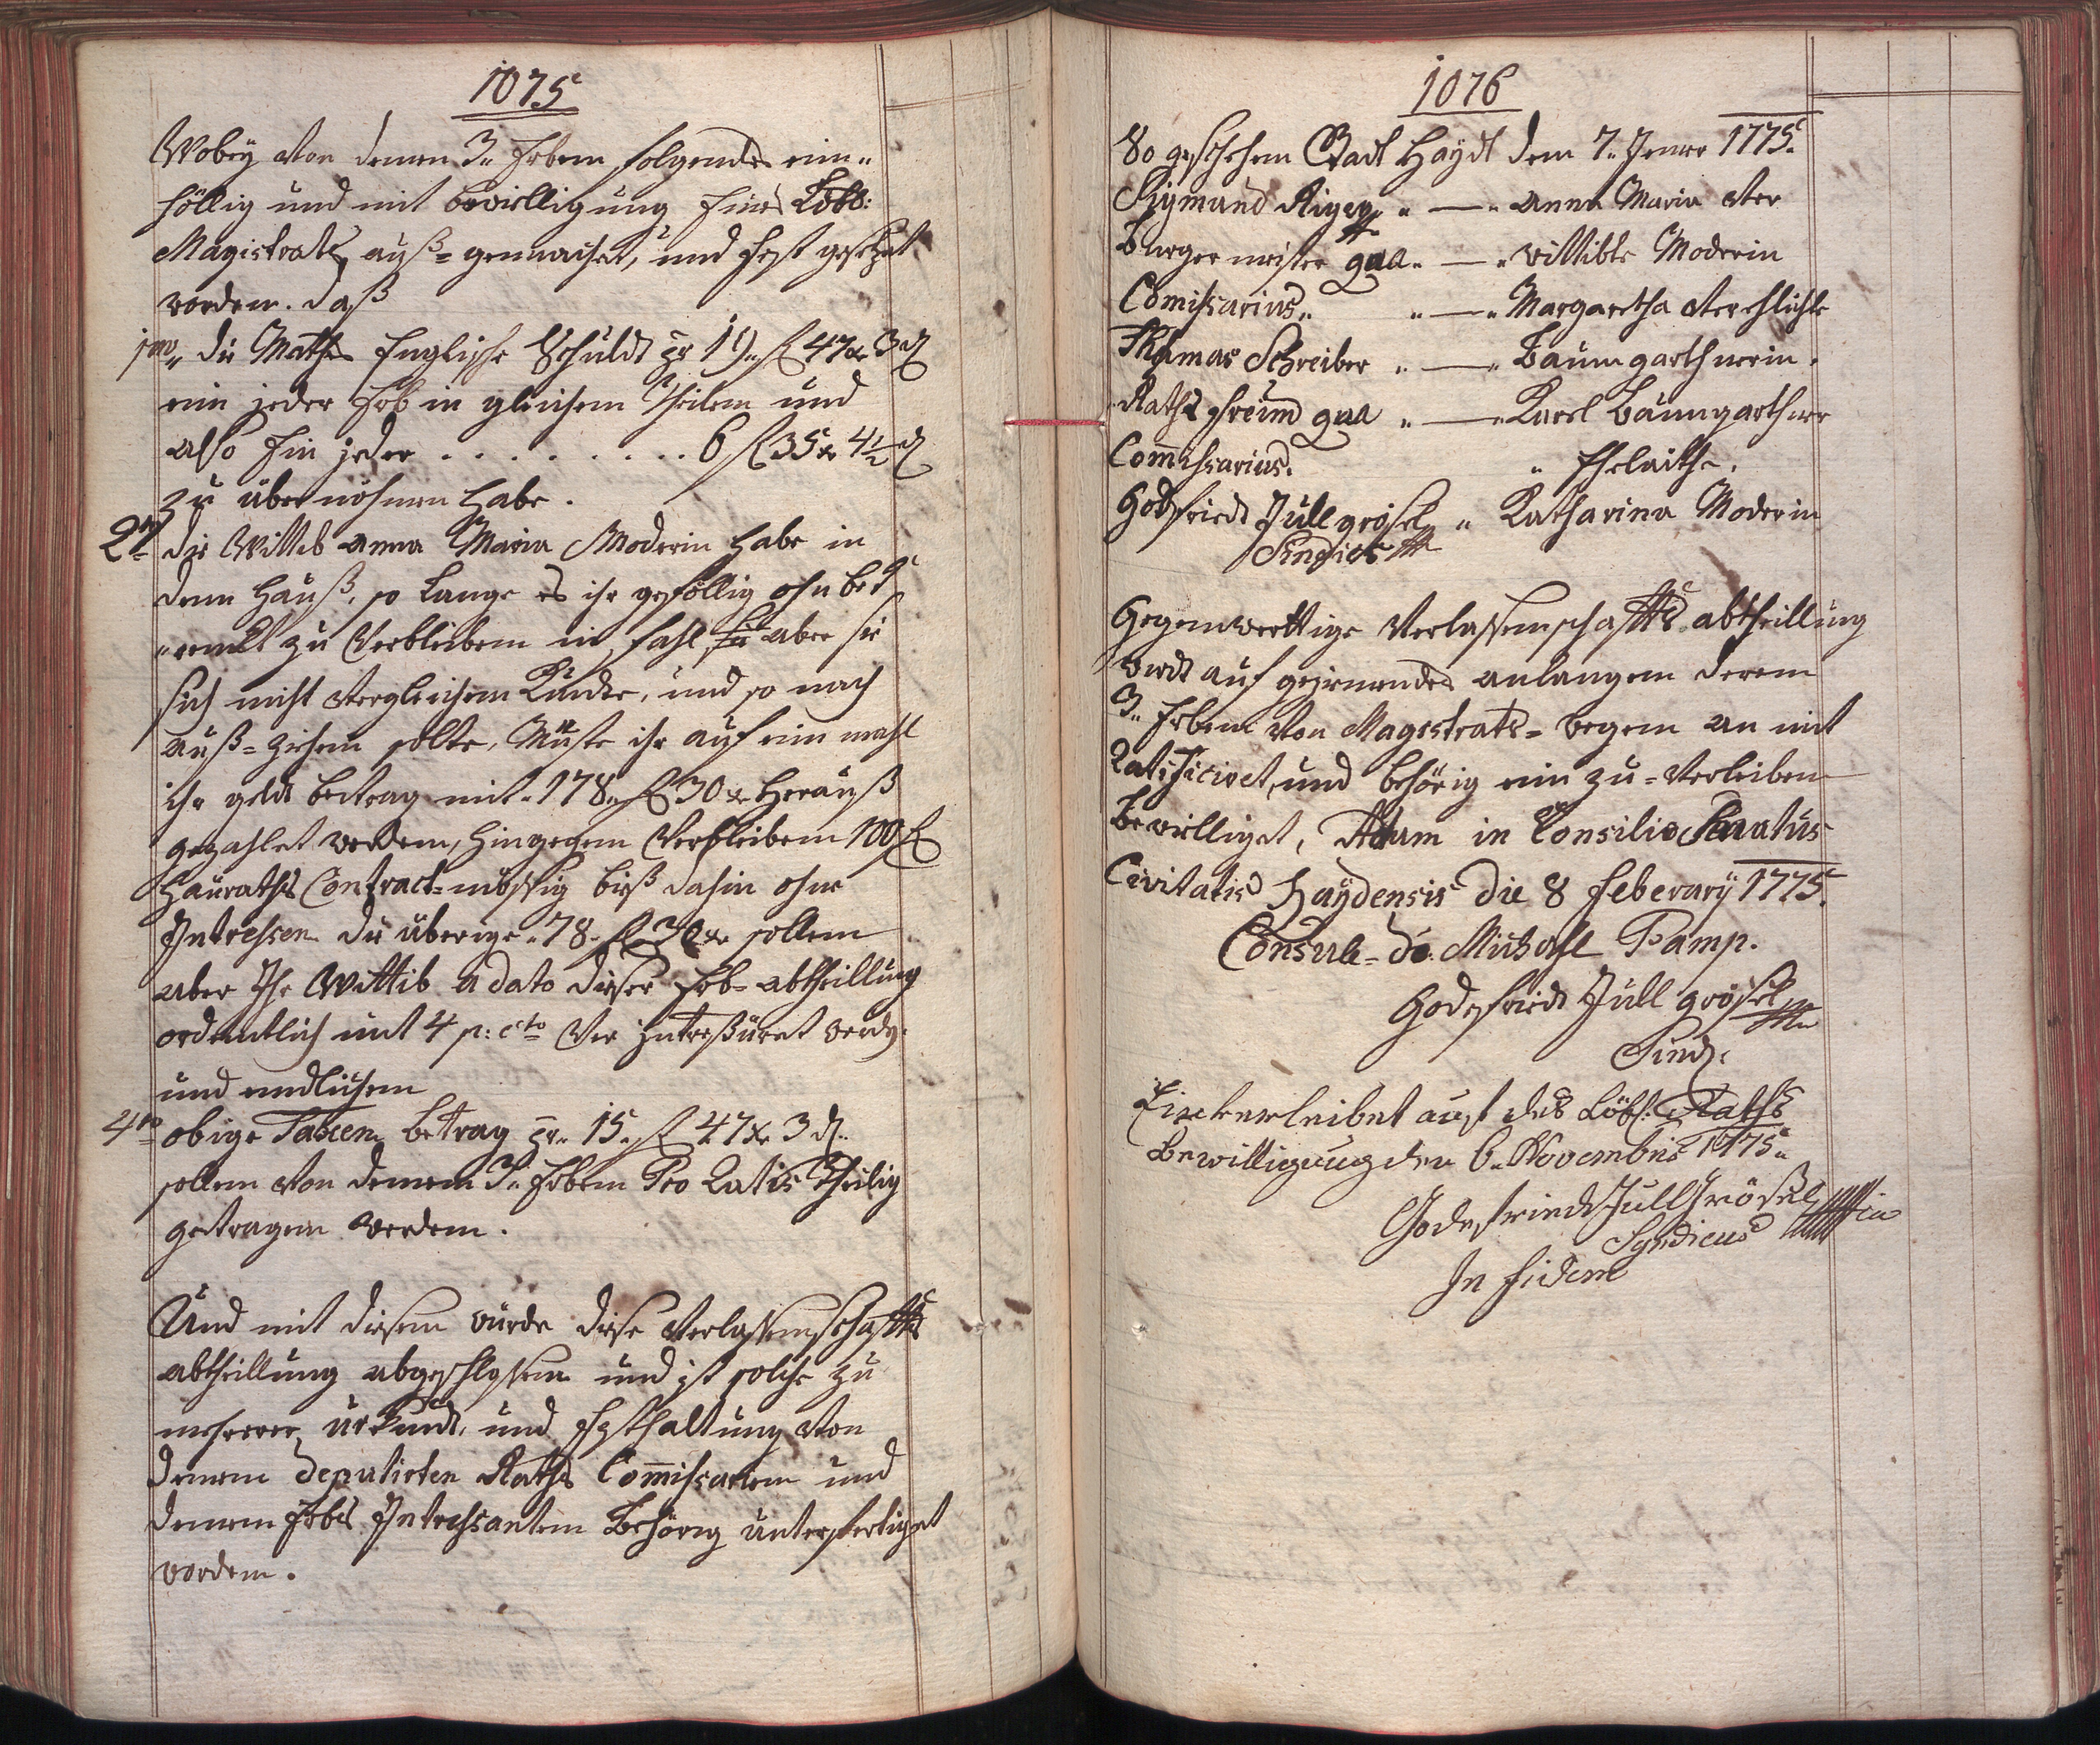 1075
Wobey von denen 3. Erben folgendes ein=
höllig und mit bewilligung Eines Löbl:
Magistrats auß=gemachet, und fest gesetzet
worden. daß
1mo die Mathes Englische Schuldt pr 19 f 47 x 3 d
ein jeder Erb in gleichen Theilen und
also Ein jeder . . . . . . . . . 6 f 35 x 4½ d
zu übernöhmen habe.
2do die Wittib Anna Maria Moderin habe in
dem Hauß, so Lange es ihr gefällig
zu Verbleiben im fahl aber sie
sich nicht Vergleichen Kundte, und so nach
auß=ziehen solte, Müste ihr auf ein mahl
ihr geldt betrag mit 178 f 30 x herauß
gezahlet werden, hingegen Verbleiben 100 f
Heuraths Contract=mässig biß dahin ohne
Intressen. die überige 78 f 30 x sollen
aber Ihr Wittib a dato dieser Erb=abtheillung
ordentlich mit 4 p: cto Ver Intressiret werdn.
und endlichen
4to obige Taxen Betrag pr 15 f 47 x 3 d.
sollen von denen 3. Erben Pro Ratis Theilig
getragen werden.
Und mit diesen wurde diese Verlassenschaffts
abtheillung abgeschlossen und ist solche zu
mehrerer Urkundt, und Festhaltung von
denen deputirten Raths Commissarien und
denen Erbs Intressanten Behörig unterfertiget
worden.
1076
So geschehen Stadt Haÿdt den 7. Jener 1775.
Sigmund Riger " — " Anna Maria Ver
Burgermeister qua " — " wittibte Moderin
Comissarius " — " Margaretha Verehlichte
Thomas Schreiber " — " Baumgarthnerin.
Raths freund qua " — " Karl Baumgarthner
Commissarius. " Ehelaithe.
Godfriedt Jüllgrösel " Katharina Moderin
Sindicus
Gegenwerttige Verlassenschaffts abtheillung
wirdt auf geziemendes anlangen deren
3. Erben Von Magistrats=wegen an mit
Ratificiret, und behörig ein zu=Verleiben
bewilliget, Actum in Consilio Senatus
Civitatis Haÿdensis die 8 Feberarÿ 1775.
Consule do. Michael Pamp.
Godefriedt Jüll grösel
Sind:
Einverleibet auf des Löbl: Raths
Bewilligung den 6. Novembris 1775.
Godefriedt JüllGrösel
Syndicus
In fidem